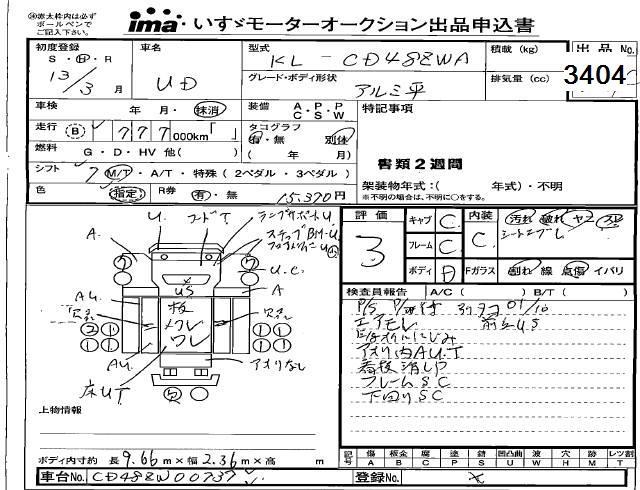 ※赤太枠内は必ず
ボールペンで
ご記入下さい。
ima いすゞモーターオークション出品申込書
初度登録 車名 型式 積載 (kg) 出品No.
S・H・R
13/3月 UD KL-CD48ZWA
グレード・ボディ形状 アルミ平 排気量 (cc) 3404
車検 年 月・抹消 装備 A・P・P C・S・W 特記事項
走行 (B) 777 000km「 」 タコグラフ 有・無 別体
燃料 G・D・HV 他( ) ( 年 月) 書類2週間
シフト 7 M/T・A/T・特殊(2ペダル・3ペダル) 架装物年式:( 年式)・不明
※不明の場合は、不明に○をする。
色 指定 R券 有・無 15,370円
評価 3 キャブ C 内装 C 汚れ 破れ ヤニ スレ
シートコゲ
フレーム C
ボディ D Fガラス 割れ 線 点傷 イバリ
U. コードT. ランプサポートU
ステップBM-U
A. A
U.C.
US
AU 板 メクレ ワレ
AU アオリなし
床U.T
検査員報告 A/C( ) B/T( )
P/S P/W付 タコ 01/10
エアモレ 前ムS
アオリ内AU.T
看板消しP
フレームSC
下回りSC
上物情報
ボディ内寸約 長9.66m×幅2.36m×高 m
記号 傷 A 板金 B 腐 C 塗 P 錆 S 凹凸曲 U 波 W 穴 H 跡 M レツ割 T
車台No. CD48ZW00737 登録No. ×